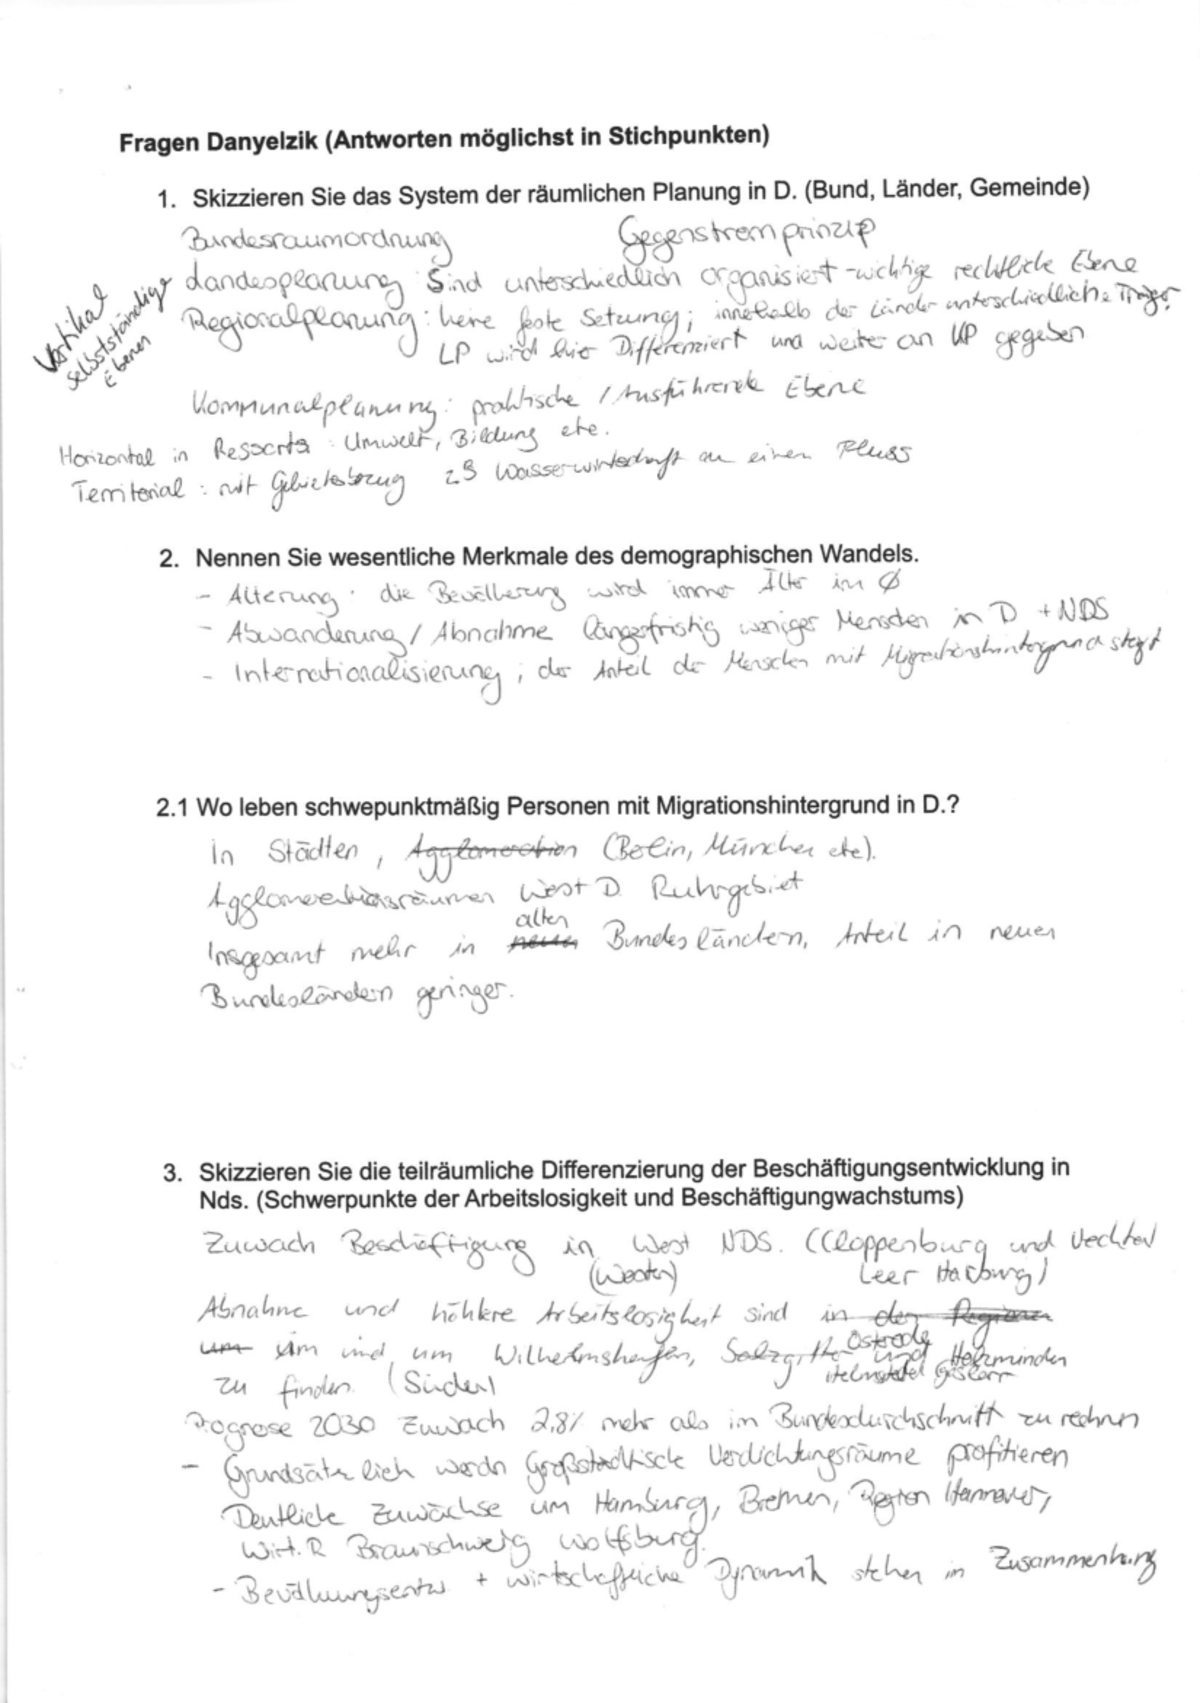 Fragen Danyelzik (Antworten möglichst in Stichpunkten)
1. Skizzieren Sie das System der räumlichen Planung in D. (Bund, Länder, Gemeinde)
Bundesraumordnung Gegenstromprinzip
Landesplanung Sind unterschiedlich organisiert - wichtige rechtliche Ebene
Regionalplanung: keine feste Setzung; innerhalb der Länder unterschiedliche Träger
LP wird hier Differenziert und weiter an KP gegeben
Vertikal
selbstständige
Ebenen
Kommunalplanung: praktische / Ausführende Ebene
Horizontal in Ressorts: Umwelt, Bildung etc.
Territorial: mit Gebietsbezug zB Wasserwirtschaft an einen Fluss
2. Nennen Sie wesentliche Merkmale des demographischen Wandels.
- Alterung: die Bevölkerung wird immer Älter im Ø
- Abwanderung / Abnahme längerfristig weniger Menschen in D + NDS
- Internationalisierung; der Anteil der Menschen mit Migrationshintergrund steigt
2.1 Wo leben schwepunktmäßig Personen mit Migrationshintergrund in D.?
In Städten, Agglomeration (Berlin, München etc).
Agglomerationsräumen West D. Ruhrgebiet
alten
Insgesamt mehr in neuen Bundesländern, Anteil in neuen
Bundesländern geringer.
3. Skizzieren Sie die teilräumliche Differenzierung der Beschäftigungsentwicklung in
Nds. (Schwerpunkte der Arbeitslosigkeit und Beschäftigungwachstums)
Zuwach Beschäftigung in West NDS. (Cloppenburg und Vechta
(Westen) Leer Harburg)
Abnahme und höhere Arbeitslosigkeit sind in den Regionen
um im und um Wilhelmshafen, Salzgitter und Holzminden
Osterode
Helmstedt Goslar
zu finden. (Süden)
Prognose 2030 Zuwach 2,8% mehr als im Bundesdurchschnitt zu rechnen
- Grundsätzlich werdn Großstädtische Verdichtungsräume profitieren
Deutliche Zuwächse um Hamburg, Bremen, Region Hannover,
Wirt. R Braunschweig Wolfsburg.
- Bevölkungsentw. + wirtschaftliche Dynamik stehen in Zusammenhang